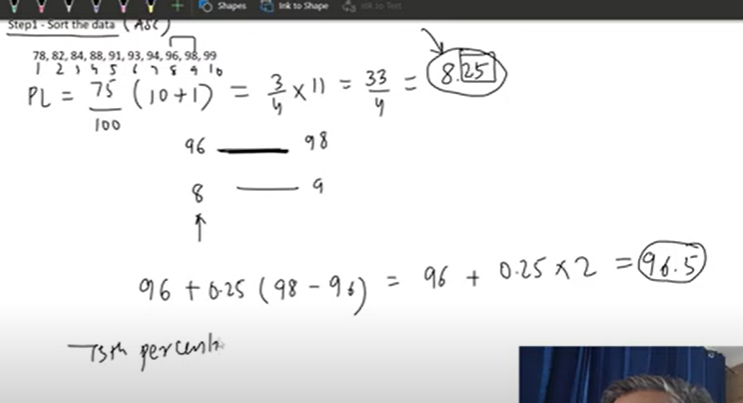 Shapes Ink to Shape Ink to Text
Step1 - Sort the data (ASC)
78, 82, 84, 88, 91, 93, 94, 96, 98, 99
1 2 3 4 5 6 7 8 9 10
PL = 75/100 (10+1) = 3/4 × 11 = 33/4 = 8.25
96 — 98
8 — 9
96 + 0.25 (98 - 96) = 96 + 0.25 × 2 = 96.5
75th percenti